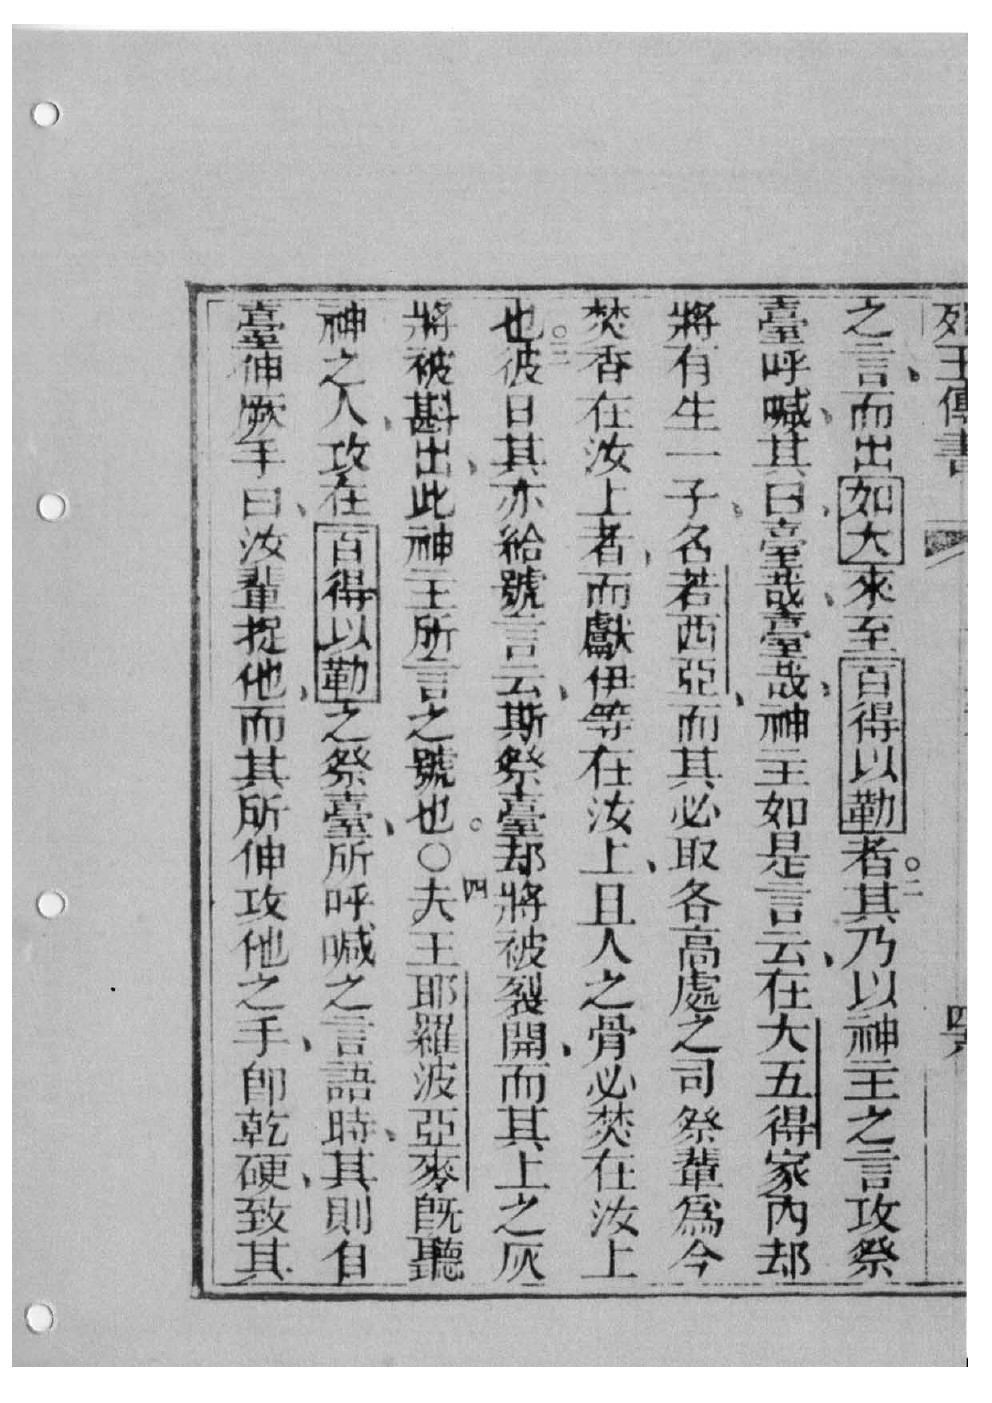 列王傳書
之言而出如大來至百得以勒者。二其乃以神主之言攻祭
臺呼喊、其曰、臺哉、臺哉、神主如是言云、在大五得家內却
將有生一子、名若西亞、而其必取各高處之司祭輩爲今
焚香在汝上者、而獻伊等在汝上、且人之骨必焚在汝上
也。三彼日其亦給號言云、斯祭臺却將被裂開、而其上之灰
將被斟出、此神主所言之號也。○四夫王耶羅波亞麥旣聽
神之人、攻在百得以勒之祭臺、所呼喊之言語時、其則自
臺伸厥手曰、汝輩捉他、而其所伸攻他之手、卽乾硬、致其